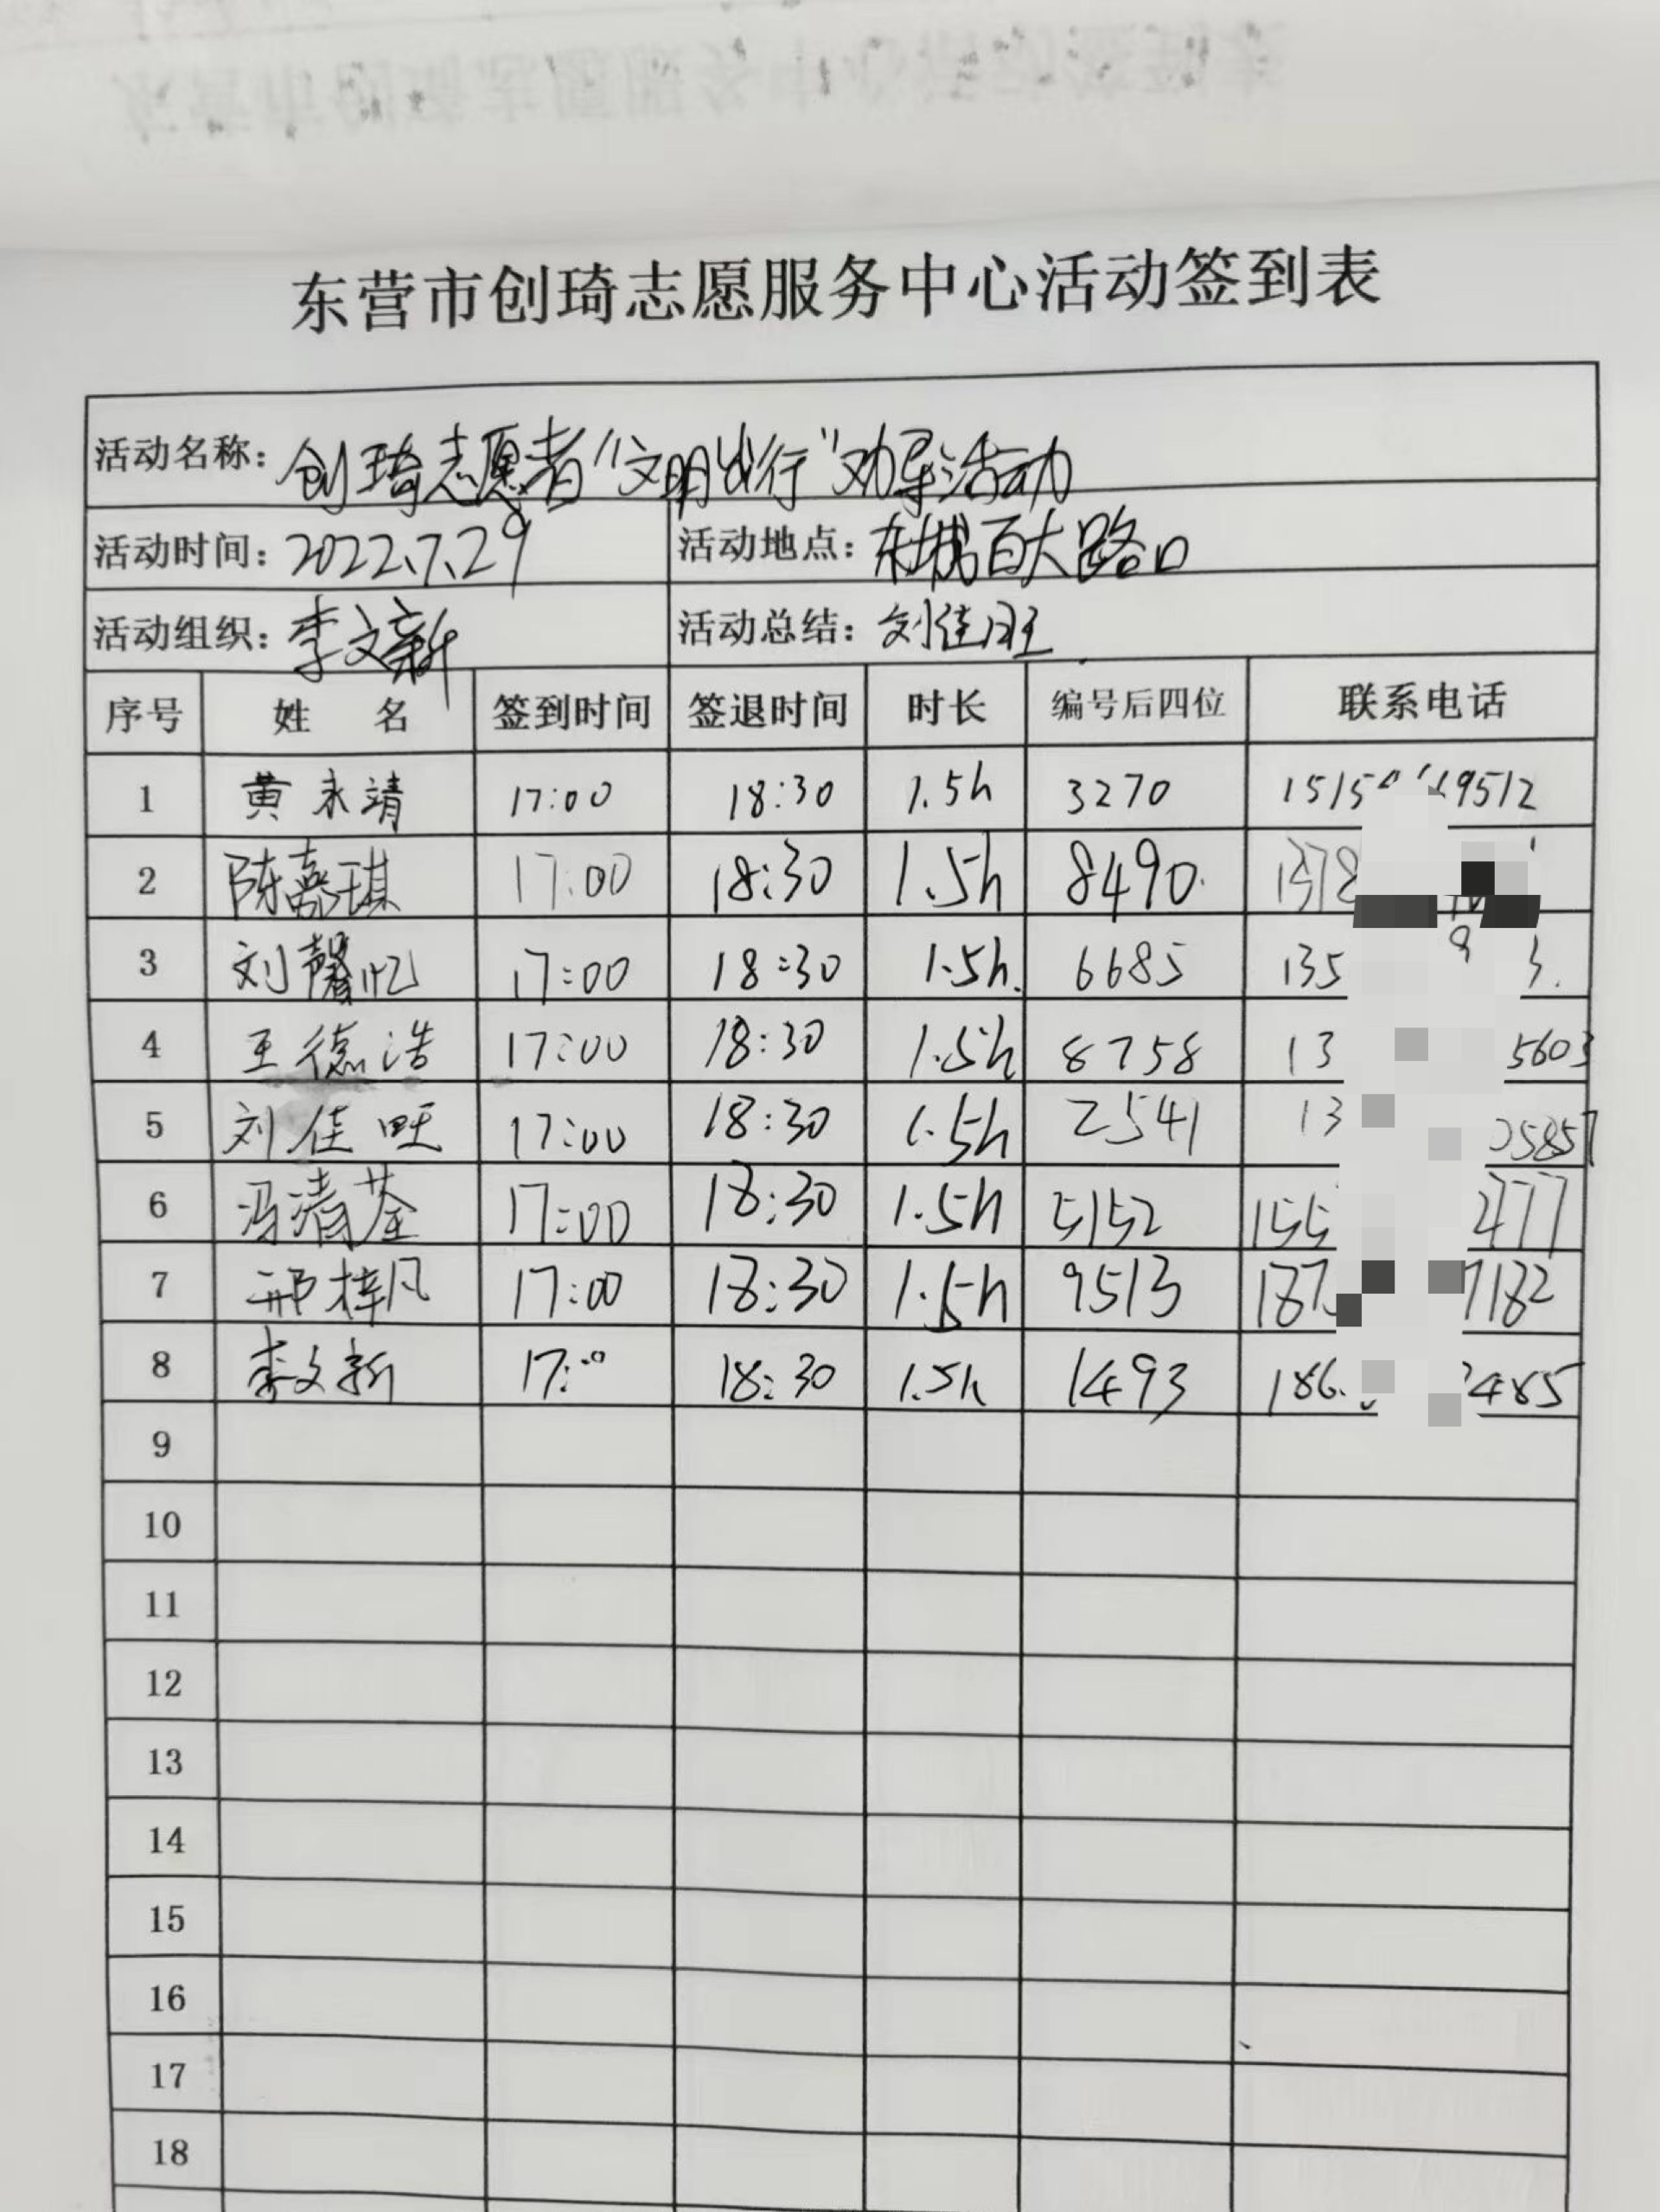 东营市创琦志愿服务中心活动签到表
活动名称：创琦志愿者“文明出行”劝导活动
活动时间：2022.7.29 活动地点：东城百大路口
活动组织：李文新 活动总结：刘佳旺
序号 姓 名 签到时间 签退时间 时长 编号后四位 联系电话
1 黄永靖 17:00 18:30 1.5h 3270 1515 9512
2 陈嘉琪 17:00 18:30 1.5h 8490 1378
3 刘馨忆 17:00 18:30 1.5h. 6685 135 9 3.
4 王德浩 17:00 18:30 1.5h 8758 13 5603
5 刘佳旺 17:00 18:30 1.5h 2541 13 5857
6 冯清荃 17:00 18:30 1.5h 5152 155 2477
7 邢梓凡 17:00 18:30 1.5h 9513 187 7182
8 李文新 17:00 18:30 1.5h 1493 186 2485
9
10
11
12
13
14
15
16
17
18